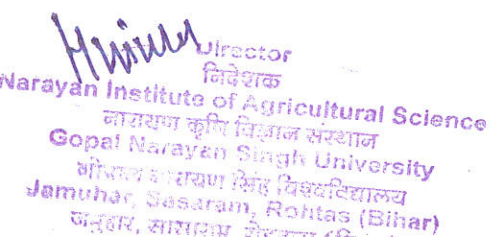 Director
निदेशक
Narayan Institute of Agricultural Science
नारायण कृषि विज्ञान संस्थान
Gopal Narayan Singh University
गोपाल नारायण सिंह विश्वविद्यालय
Jamuhar, Sasaram, Rohtas (Bihar)
जमुहार, सासाराम, रोहतास